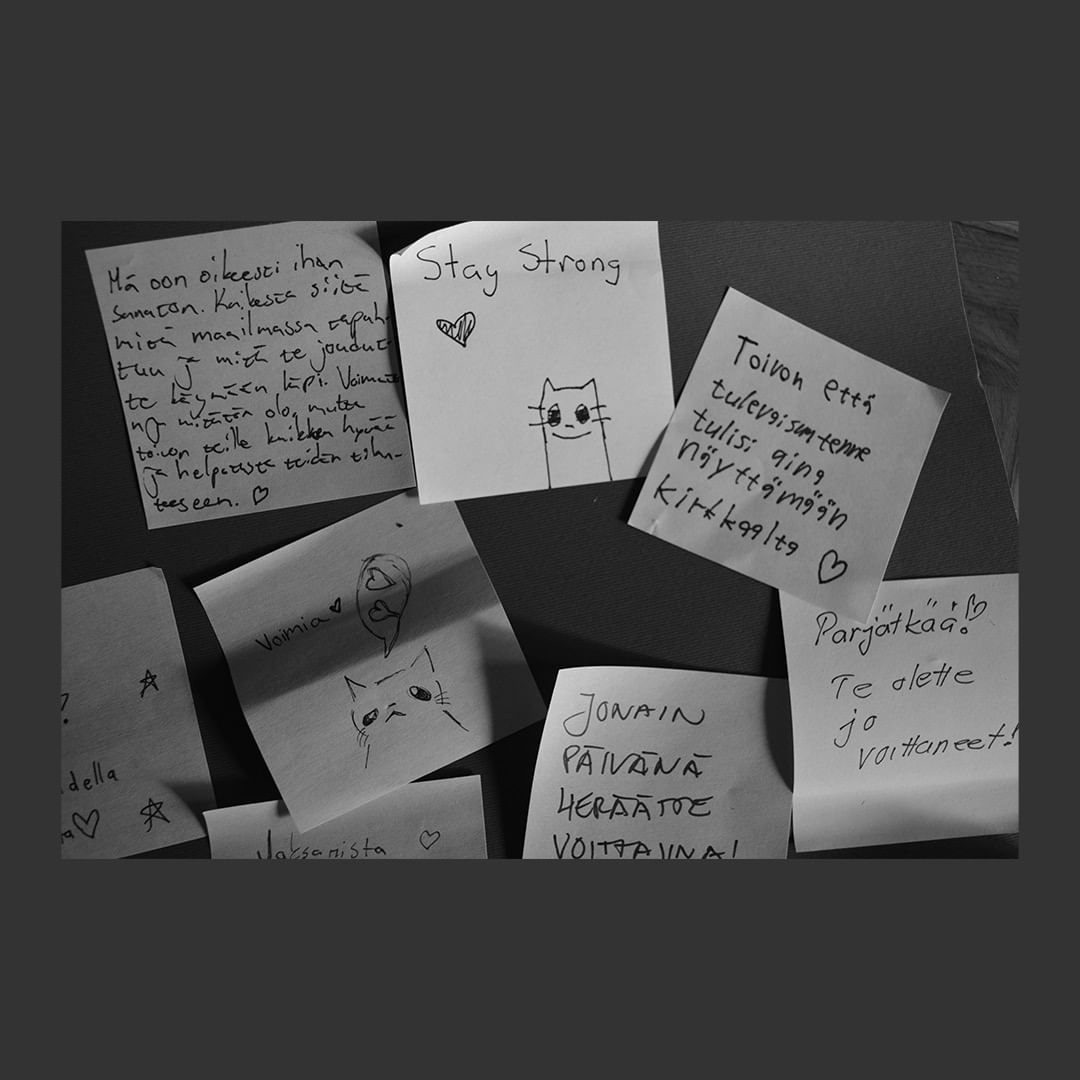 Mä oon oikeesti ihan
sanaton. Kaikesta siitä
mitä maailmassa tapah-
tuu ja mitä te joudut-
te käymään läpi. Voimat-
on ja mitätön olo, mutta
toivon teille kaikkea hyvää
ja helpotusta teidän tilan-
teeseen. ♡
Stay Strong
Toivon että
tulevaisuutenne
tulisi aina
näyttämään
kirkkaalta ♡
Voimia ♥
Parjätkää! ♡
Te olette
jo
voittaneet!
JONAIN
PÄIVÄNÄ
HERÄÄTTE
VOITTAJINA!
Jaksamista ♡